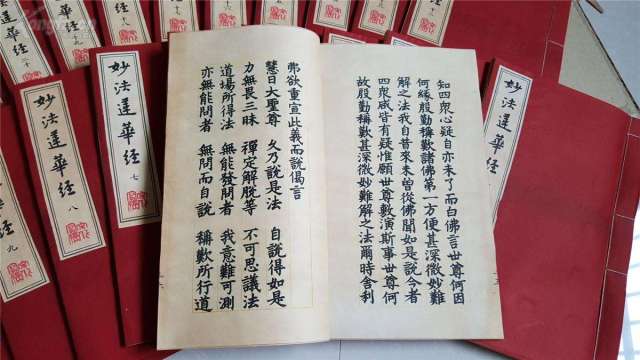 知四眾心疑自亦未了而白佛言世尊何因
何緣殷勤稱歎諸佛第一方便甚深微妙難
解之法我自昔來未曾從佛聞如是說今者
四眾咸皆有疑惟願世尊敷演斯事世尊何
故殷勤稱歎甚深微妙難解之法爾時舍利
弗欲重宣此義而說偈言
慧日大聖尊 久乃說是法 自說得如是
力無畏三昧 禪定解脫等 不可思議法
道場所得法 無能發問者 我意難可測
亦無能問者 無問而自說 稱歎所行道
妙法蓮華經
妙法蓮華經 七
妙法蓮華經 八
九